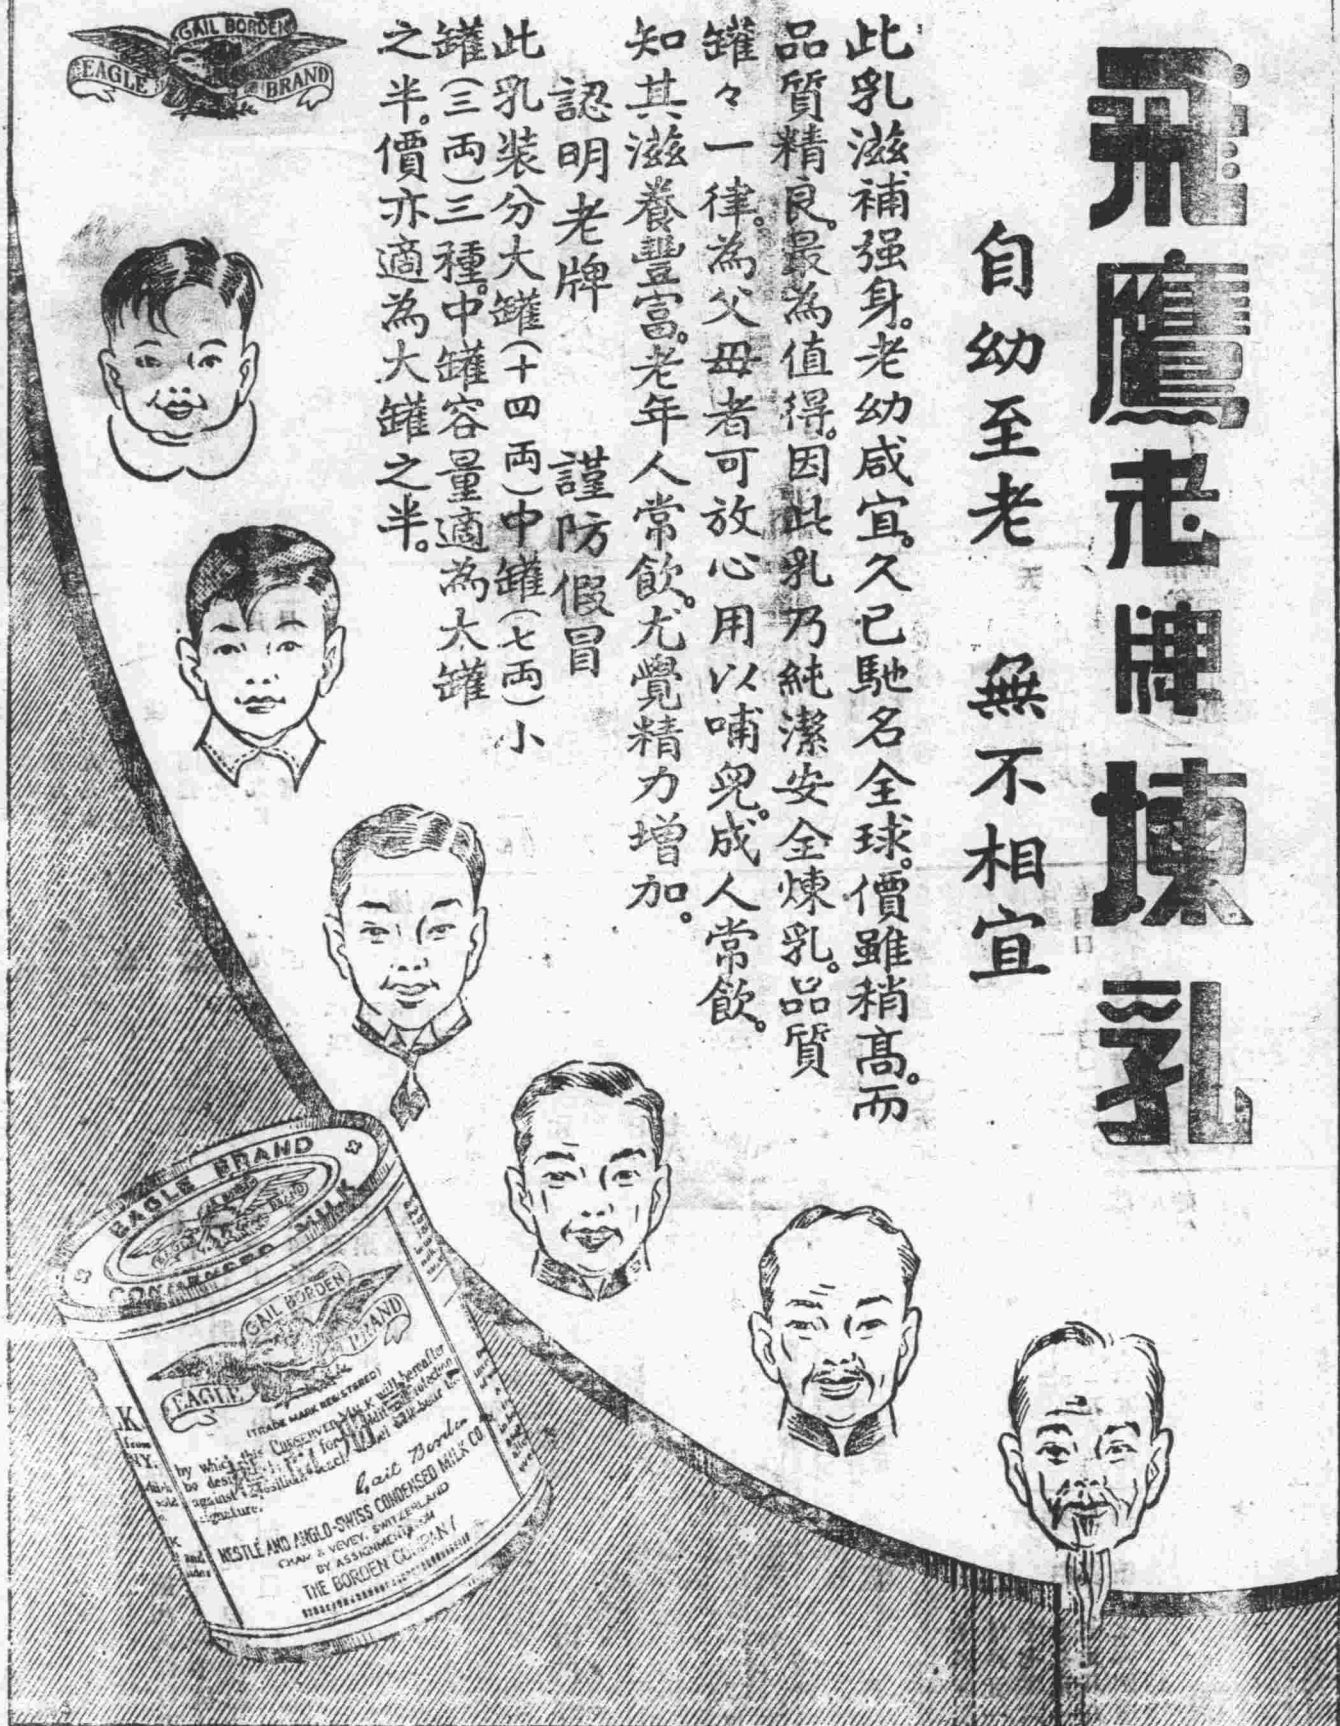 飛鷹老牌煉乳
自幼至老 無不相宜
此乳滋補强身。老幼咸宜。久已馳名全球。價雖稍高。而
品質精良。最為值得。因此乳乃純潔安全煉乳。品質
罐々一律。為父母者可放心用以哺兒。成人常飲。
知其滋養豐富。老年人常飲。尤覺精力增加。
認明老牌 謹防假冒
此乳装分大罐(十四両)中罐(七両)小
罐(三両)三種。中罐容量適為大罐
之半。價亦適為大罐之半。
GAIL BORDEN
EAGLE BRAND
EAGLE BRAND
CONDENSED MILK
EAGLE BRAND
GAIL BORDEN
EAGLE BRAND
(TRADE MARK REGISTERED)
by which this CONSERVED MILK will hereafter
be
against
signature.
Gail Borden
NESTLÉ AND ANGLO-SWISS CONDENSED MILK CO
CHAM & VEVEY, SWITZERLAND
BY ASSIGNMENT FROM
THE BORDEN COMPANY